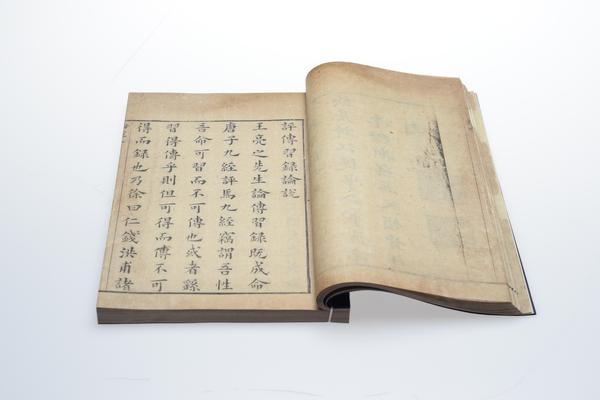 評傳習錄論說
王亮之先生論傳習録既成命
唐子九經評焉九經竊謂吾性
吾命可習而不可傳也或者繇
習得傳乎則但可得而傳不可
得而録也乃徐曰仁錢洪甫諸